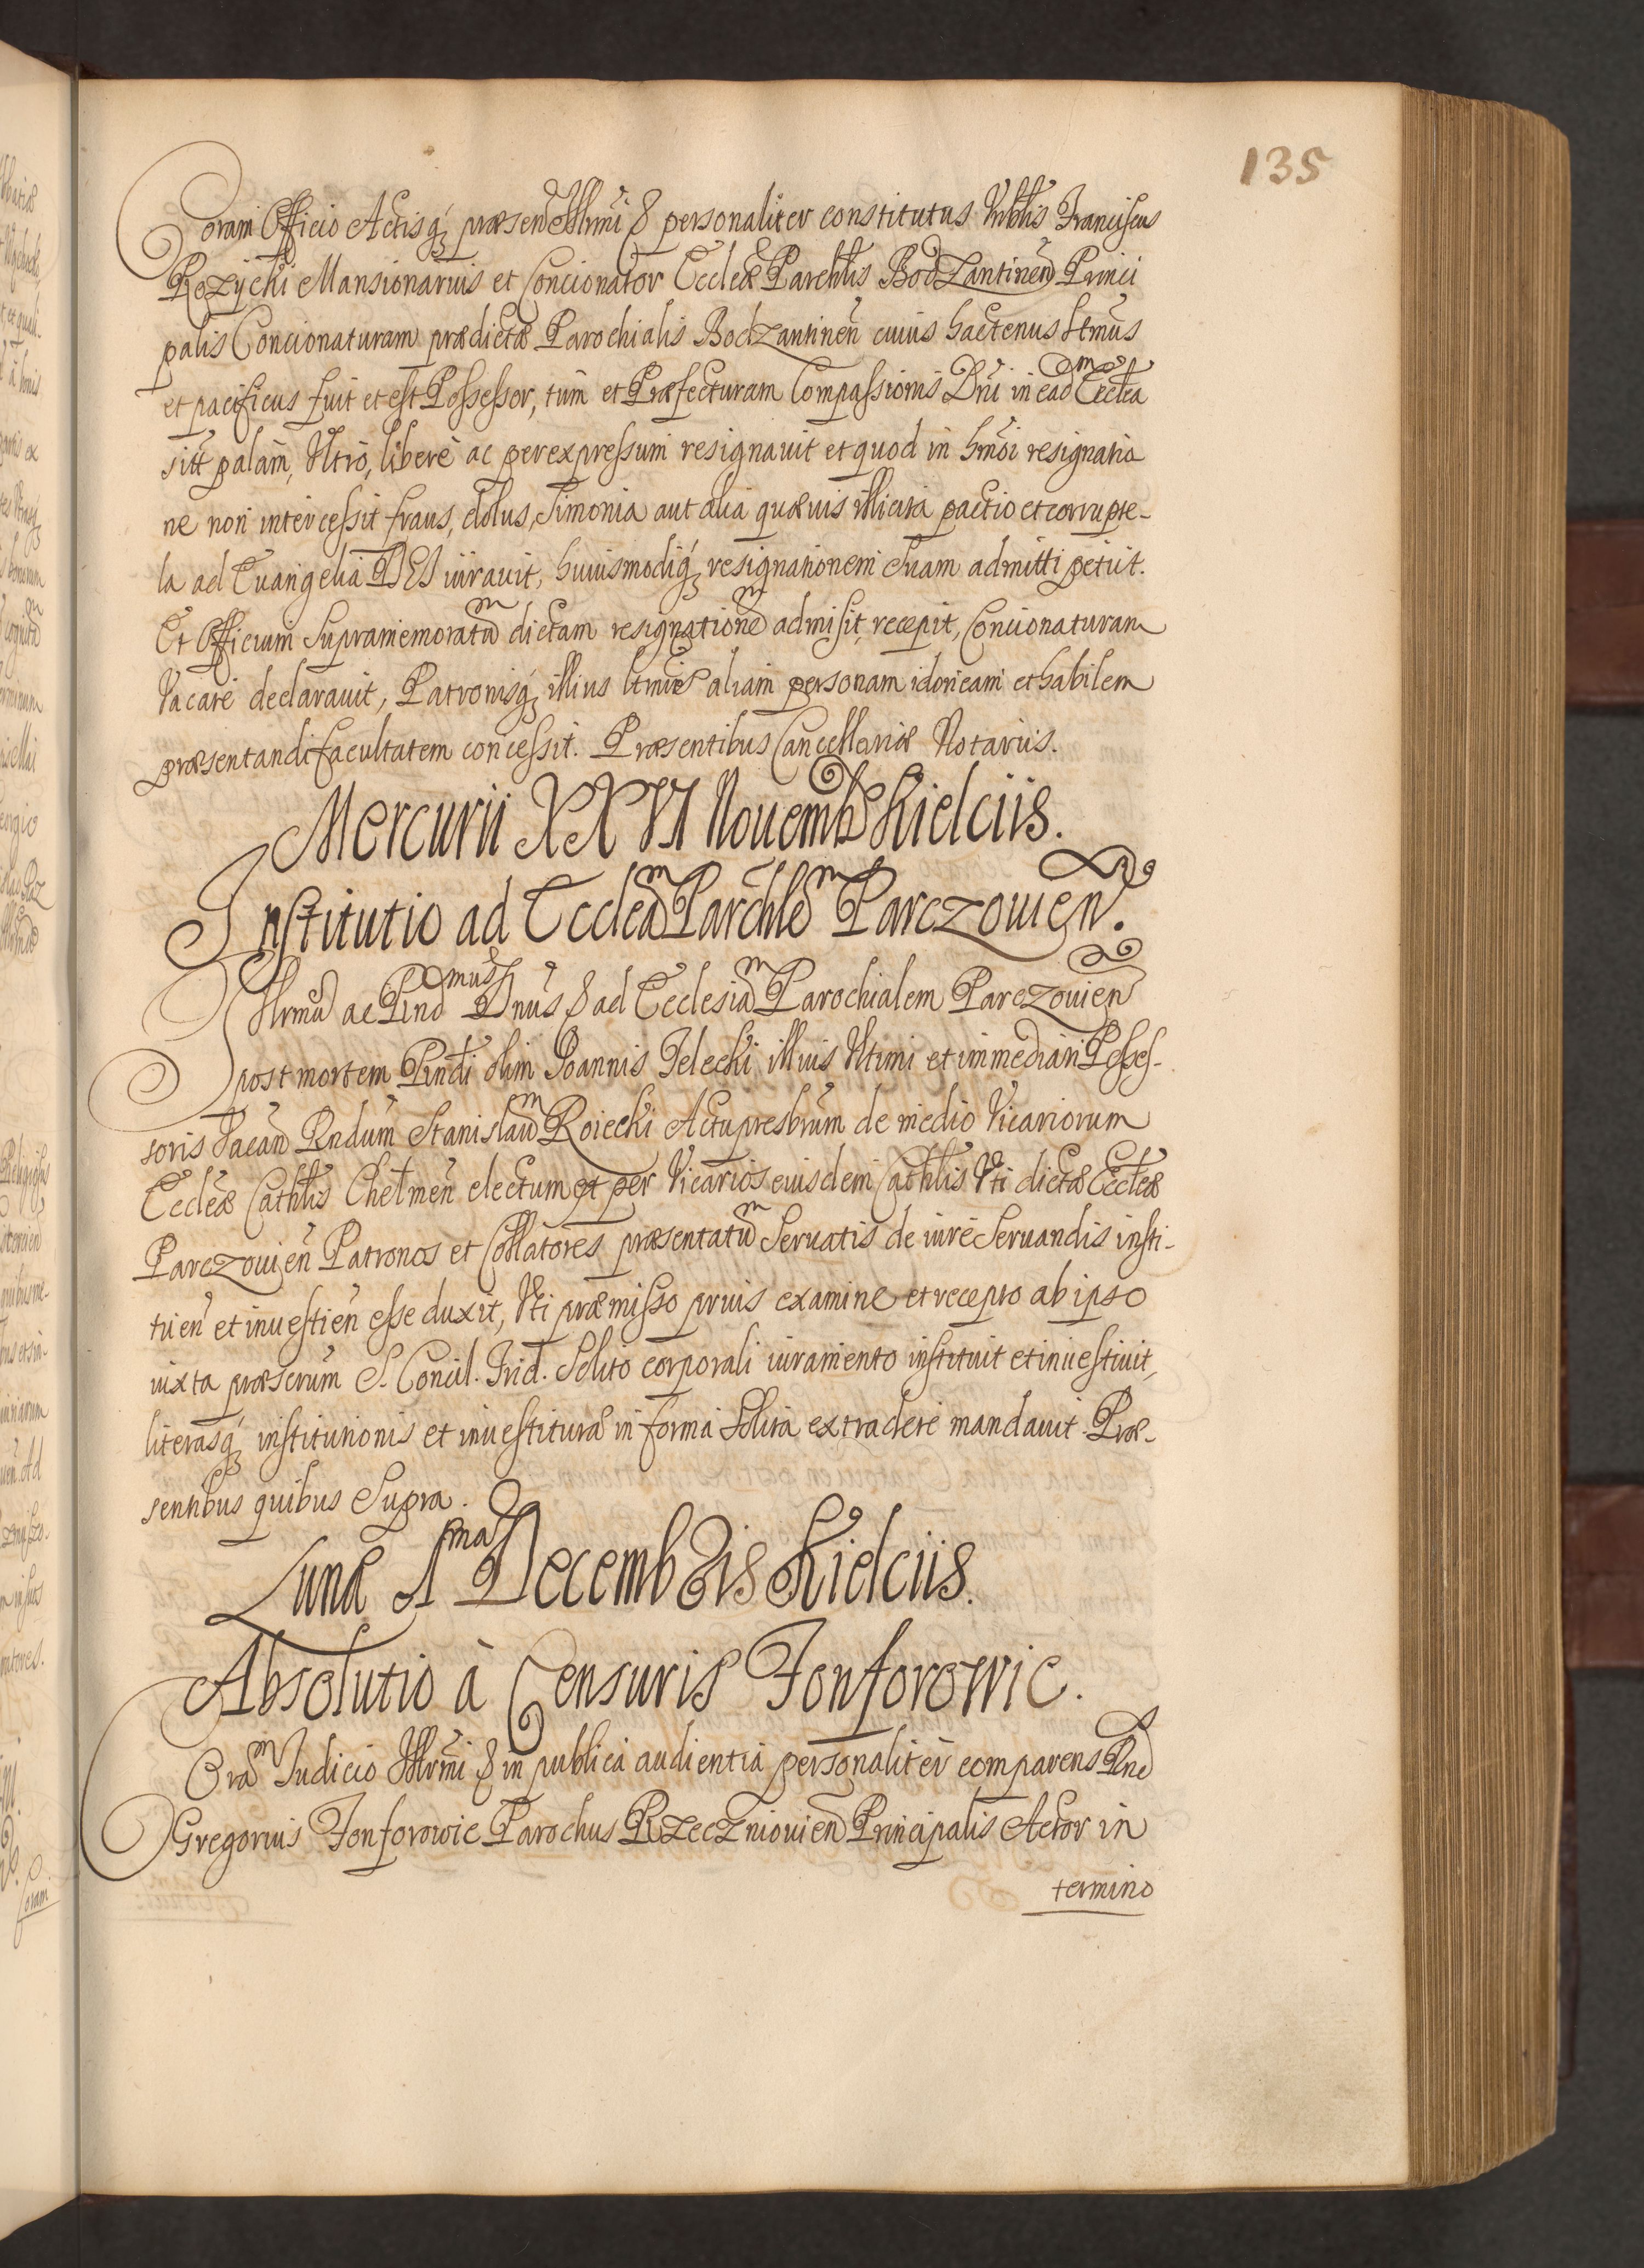 135
Coram Officio Actisq; præsen Illrmi & personaliter constitutus Vrblis Franciscus
Rozycki Mansionarius et Concionator Eccleæ Parchlis Bodzantinen Princi
palis Concionaturam prædictæ Parochialis Bodzantinen cuius hactenus ltmus
et pacificus fuit et est Possessor, tum et Præfecturam Compassionis Dni in eadem Ecclea
sitt palam, Vltro, libere ac per expressum resignauit et quod in hmoi resignatio
ne non intercessit fraus, dolus, Simonia aut alia quæuis illicita pactio et corrupte-
la ad Euangelia DEI iurauit, huiusmodiq; resignationem suam admitti petiit.
Et Officium Supramemoratum dictam resignationem admisit, recepit, Concionaturam
Vacare declarauit, Patronisq; illius ltmis aliam personam idoneam et habilem
præsentandi facultatem concessit. Præsentibus Cancellariæ Notariis.
Mercurii XXVI Nouemb Kielciis.
Institutio ad Eccleam Parchlem Parczouien.
Illrmus ac Rndmus Dnus & ad Ecclesiam Parochialem Parczouien
post mortem Rndi olim Joannis Jelecki illius Vltimi et immediati Posses-
soris Vacan Rndum Stanislaum Roiecki Actu presbrum de medio Vicariorum
Eccleæ Cathlis Chelmen electum et per Vicarios eiusdem Cathlis Vti dictæ Eccleæ
Parczouien Patronos et Collatores præsentatum Seruatis de iure Seruandis insti-
tuen et inuestien esse duxit, Vti præmisso prius examine et recepto ab ipso
iuxta præscrum S. Concil. Trid. Solito corporali iuramento instituit et inuestiuit,
literasq; institutionis et inuestituræ in forma Solita extradere mandauit. Præ-
sentibus quibus Supra.
Lunæ 1ma Decembris Kielciis.
Absolutio à Censuris Fonforowic.
Coram Iudicio Illrmi & in publica audientia personaliter comparens Rnd
Gregorius Fonforowic Parochus Rzeczniouien Principalis Actor in
termino